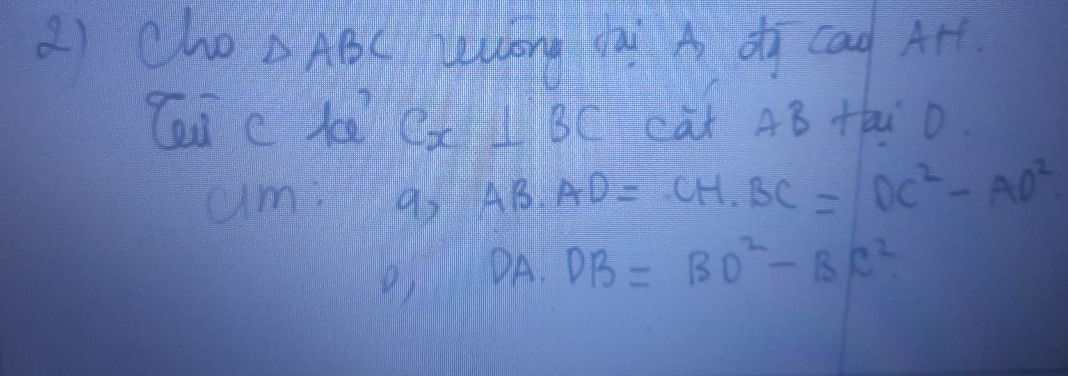 2) Cho △ ABC vuông tại A, đg cao AH.
Từ C kẻ Cx ⊥ BC cắt AB tại D.
CM: a, AB.AD = CH.BC = DC² - AD².
b, DA.DB = BD² - BC².